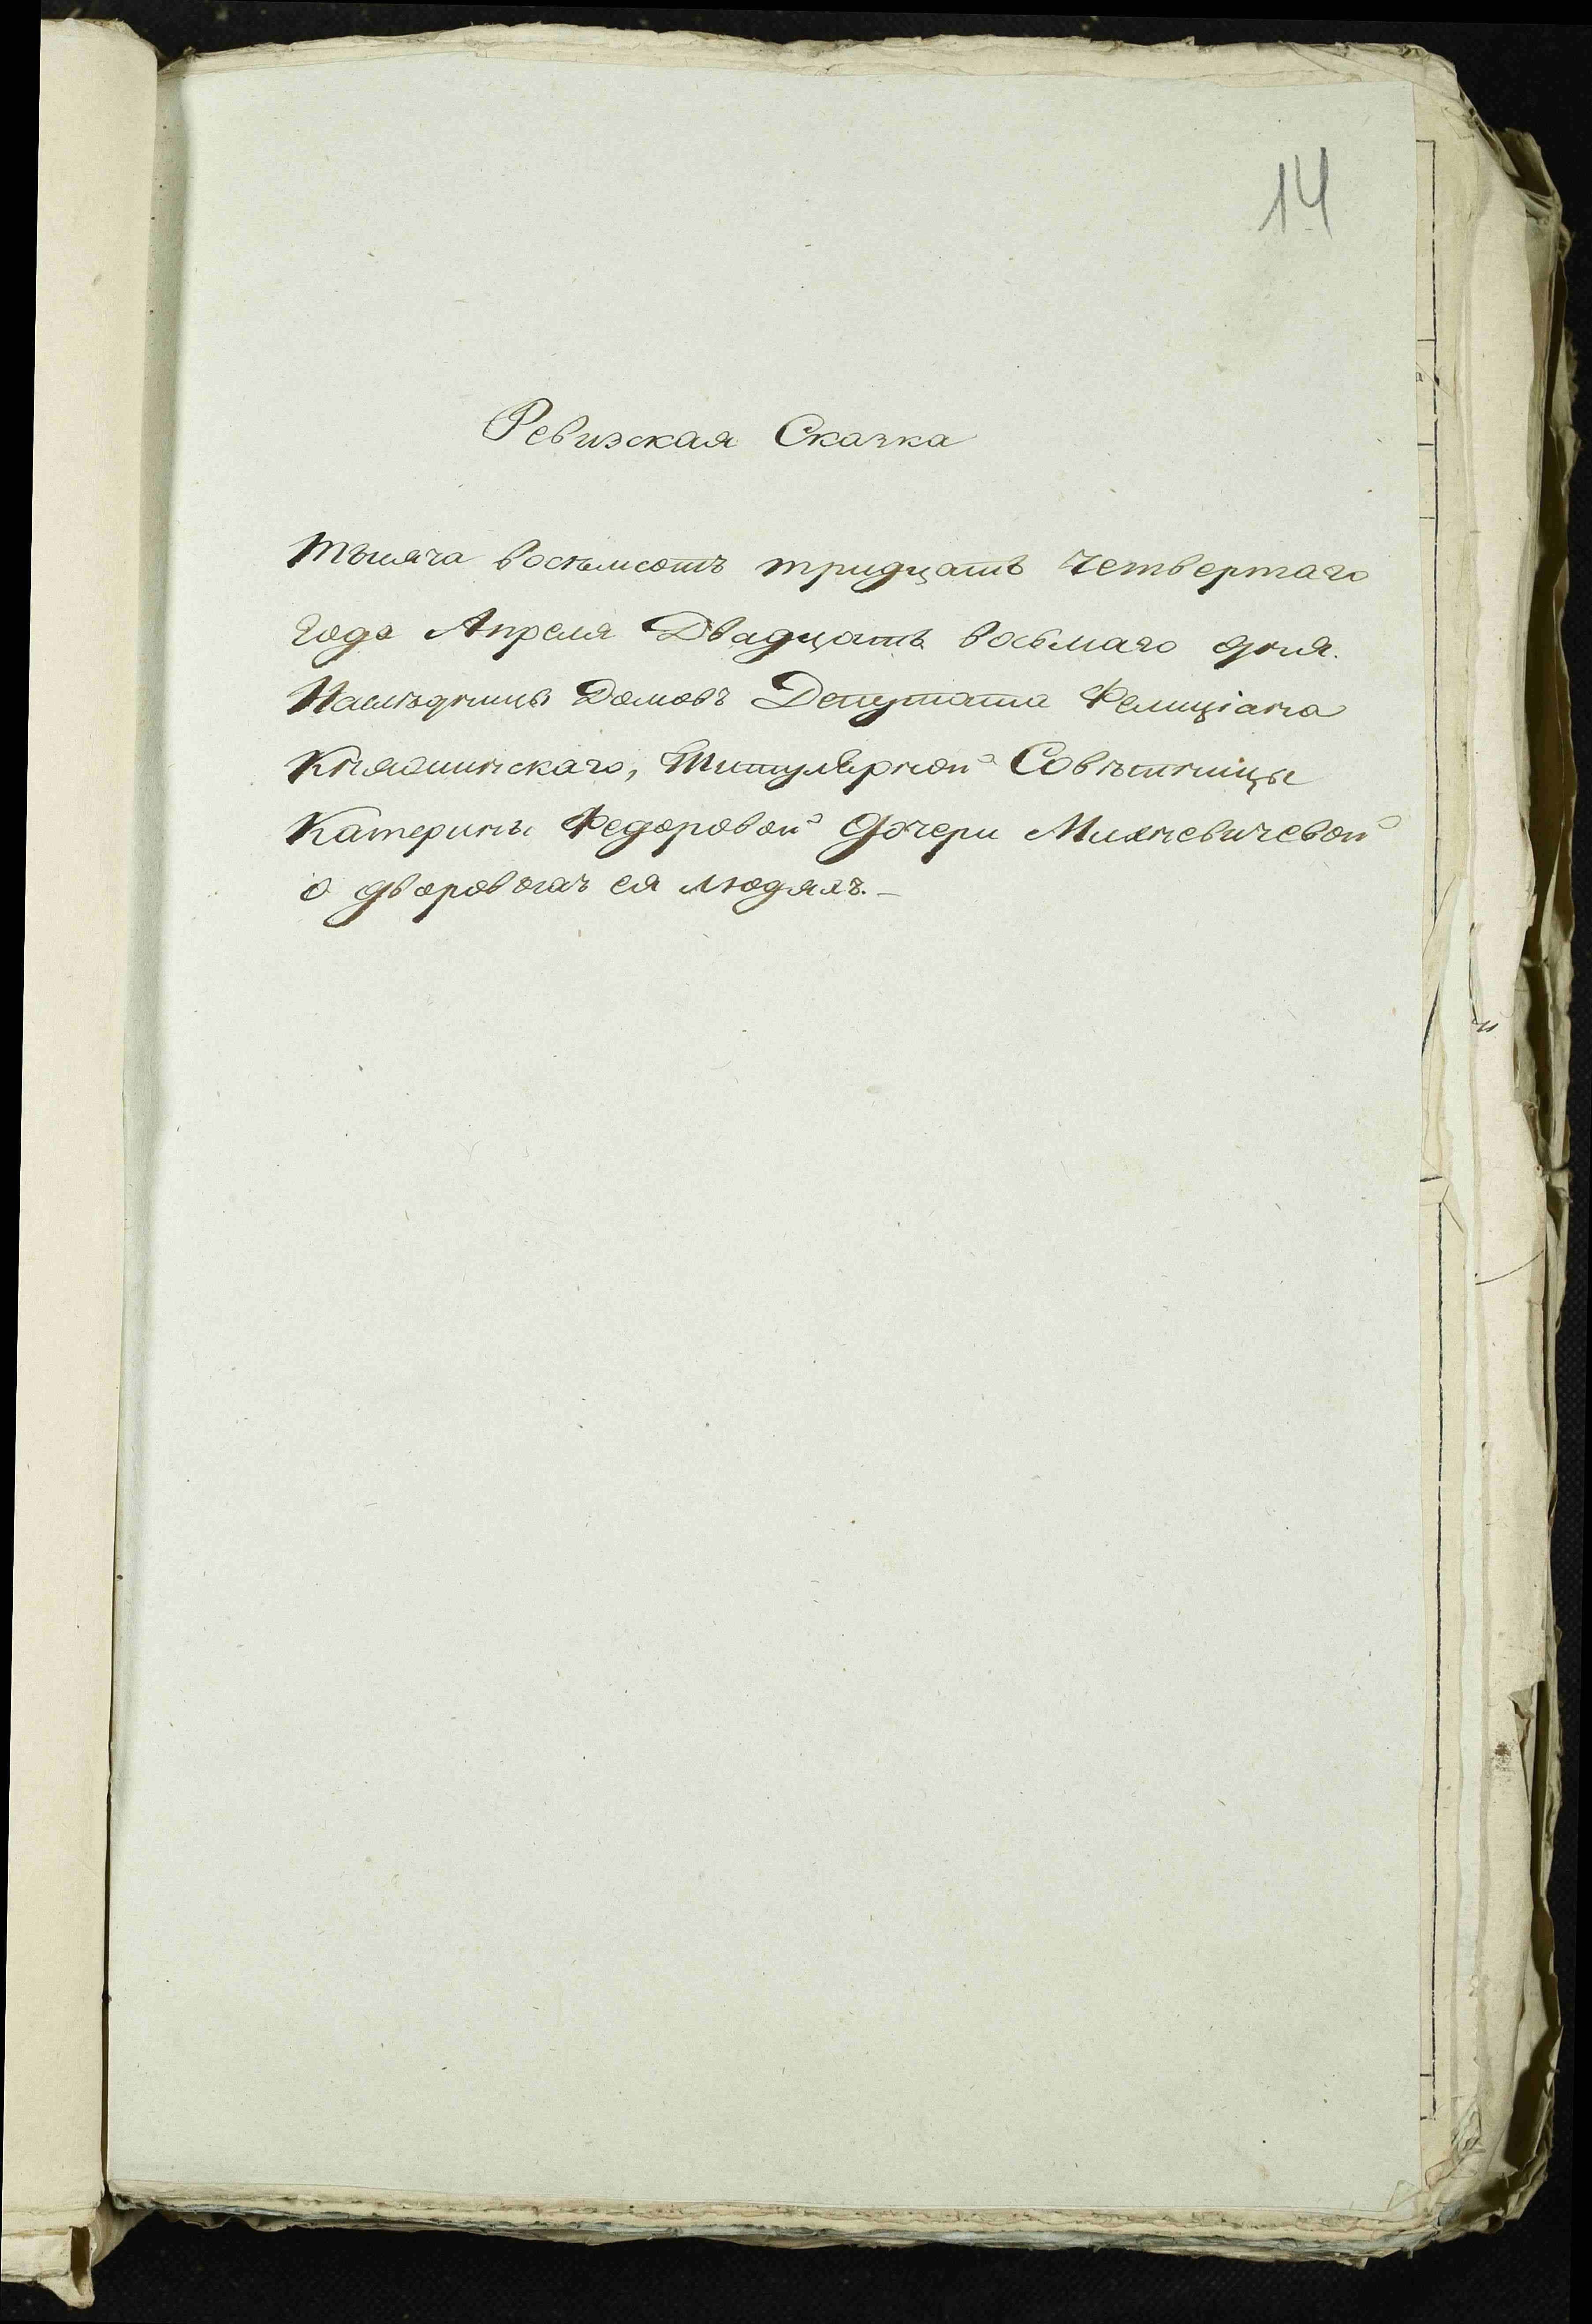 14
Ревизская Сказка
Тысяча восемьсотъ тридцать четвертаго
года Апреля Двадцать восьмаго дня.
Наследницы Домовъ Депутата Фелиціана
Титулярной Совѣтницы
Катерины Федоровой дочери Михневичевой
о дворовыхъ ея людяхъ.—